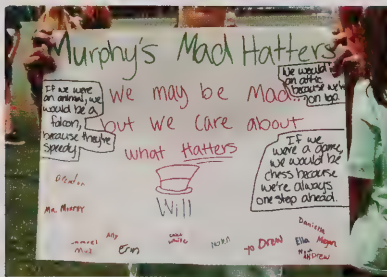 Murphy's Mad Hatters
If we were
an animal, we
would be a
falcon,
because they're
speedy.
We may be Mad...
but we care about
what Hatters
We would
an attic
because we're
on top.
If we
were a game,
we would be
chess because
we're always
one step ahead.
Will
Brenton
Mr. Murphy
Samuel
Amy
Erin
Yo Drew
Danielle
Ella
Megan
Andrew